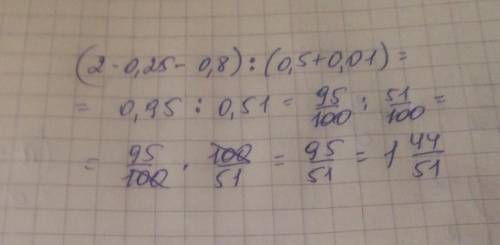 (2-0,25-0,8):(0,5+0,01)=
= 0,95 : 0,51 = 95/100 : 51/100 =
= 95/100 · 100/51 = 95/51 = 1 44/51